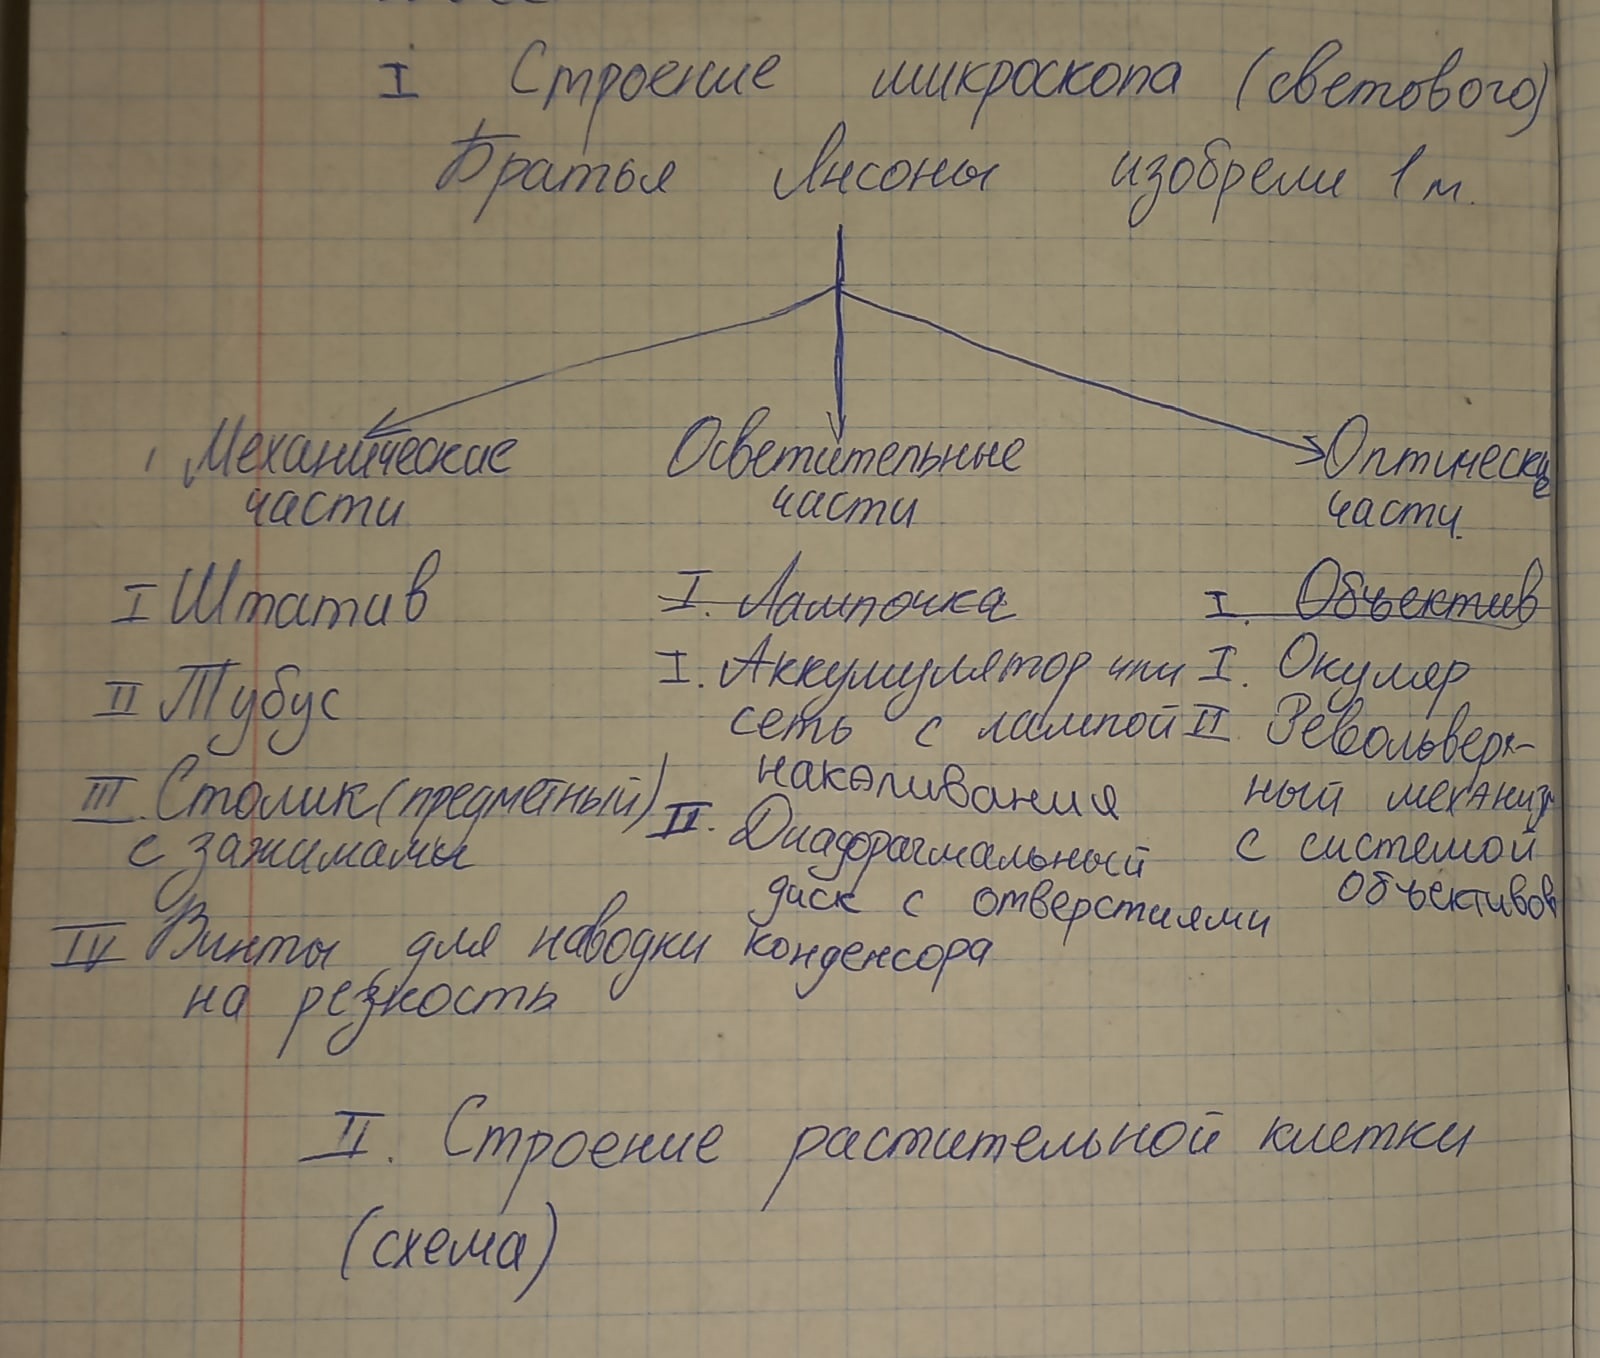 I Строение микроскопа (светового)
Братья Янсоны изобрели 1 м.
Механические части
I Штатив
II Тубус
III Столик (предметный)
с зажимамы
IV Винты для наводки
на резкость
Осветительные
части
I. Лампочка
I. Аккумулятор или
сеть с лампой
накаливания
II. Диафрагмальный
диск с отверстиями
конденсора
Оптические
части
I. Объектив
I. Окуляр
II Револьвер-
ный механизм
с системой
объективов
II. Строение растительной клетки
(схема)